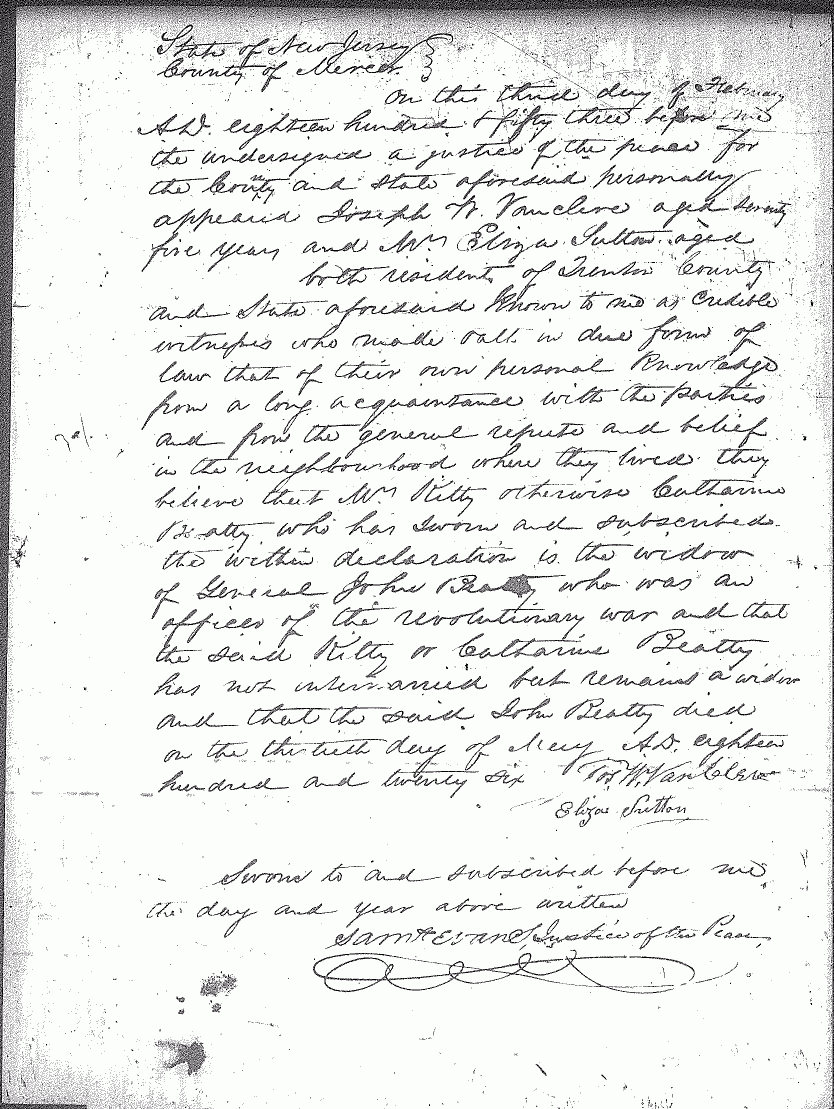 State of New Jersey }
County of Mercer. }
On this third day of February
A.D. eighteen hundred & fifty three before me
the undersigned a justice of the peace for
the County and State aforesaid personally
appeared Joseph W. Vancleve aged seventy
five years and Mrs Eliza Sutton aged
both residents of Trenton County
and State aforesaid known to me as credible
witnesses who made oath in due form of
law that of their own personal knowledge
from a long acquaintance with the parties
and from the general repute and belief
in the neighbourhood where they lived they
believe that Mrs Kitty otherwise Catharine
Beatty who has sworn and subscribed
the within declaration is the widow
of General John Beatty who was an
officer of the revolutionary war and that
the said Kitty or Catharine Beatty
has not intermarried but remains a widow
and that the said John Beatty died
on the thirtieth day of May A.D. eighteen
hundred and twenty six Jos. W. Van Cleve
Eliza Sutton
Sworn to and subscribed before me
the day and year above written
Saml Evans, Justice of the Peace,